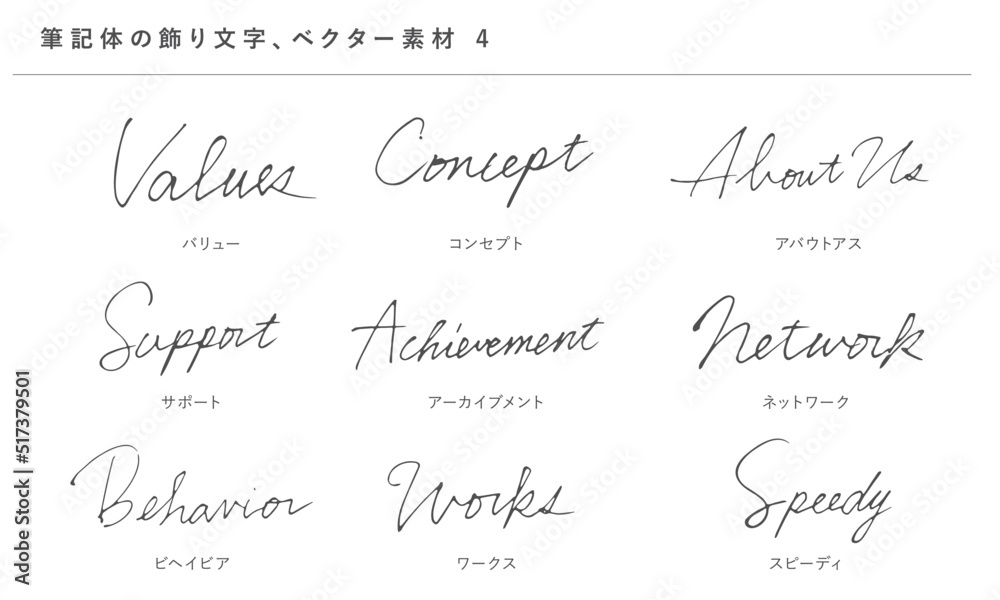 筆記体の飾り文字、ベクター素材 4
Values
Concept
About Us
バリュー
コンセプト
アバウトアス
Support
Achievement
Network
サポート
アーカイブメント
ネットワーク
Behavior
Works
Speedy
ビヘイビア
ワークス
スピーディ
Adobe Stock | #517379501